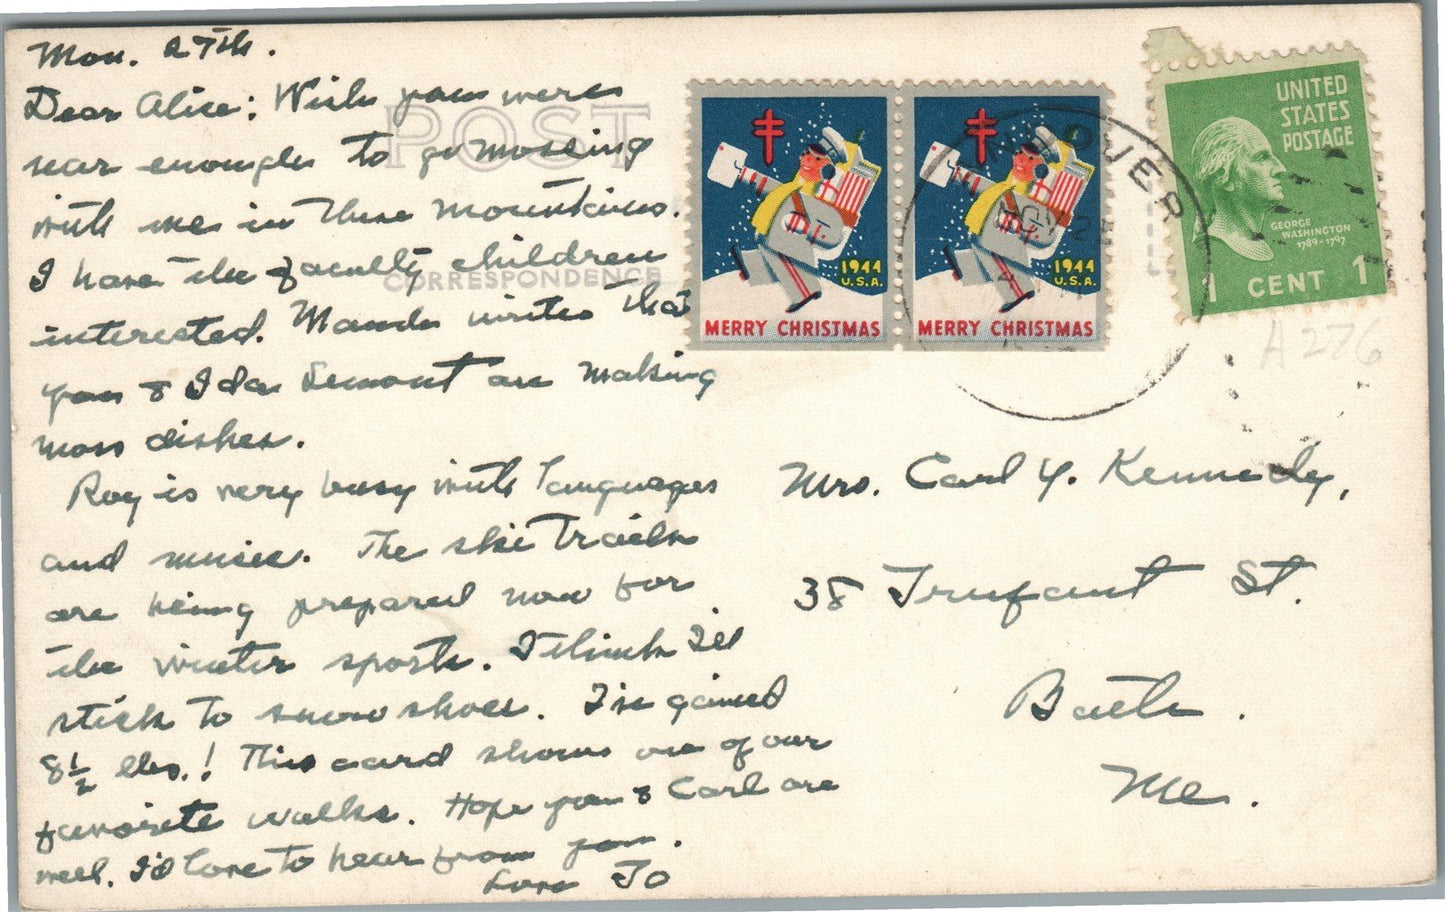 Mon. 27th.
Dear Alice: Wish you were
near enough to go mossing
with me in these mountains.
I have the faculty children
interested. Maude writes that
you & Ida Lemont are making
moss dishes.
Roy is very busy with languages
and music. The ski trails
are being prepared now for
the winter sports. I think I'll
stick to snow shoes. I've gained
8 1/2 lbs.! This card shows one of our
favorite walks. Hope you & Carl are
well. I'd love to hear from you.
Love Jo
POST
CORRESPONDENCE
1944
U.S.A.
MERRY CHRISTMAS
1944
U.S.A.
MERRY CHRISTMAS
NOV 2
UNITED
STATES
POSTAGE
GEORGE
WASHINGTON
1789-1797
1 CENT 1
A276
Mrs. Carl Y. Kennedy,
38 Trufant St.
Bath.
Me.